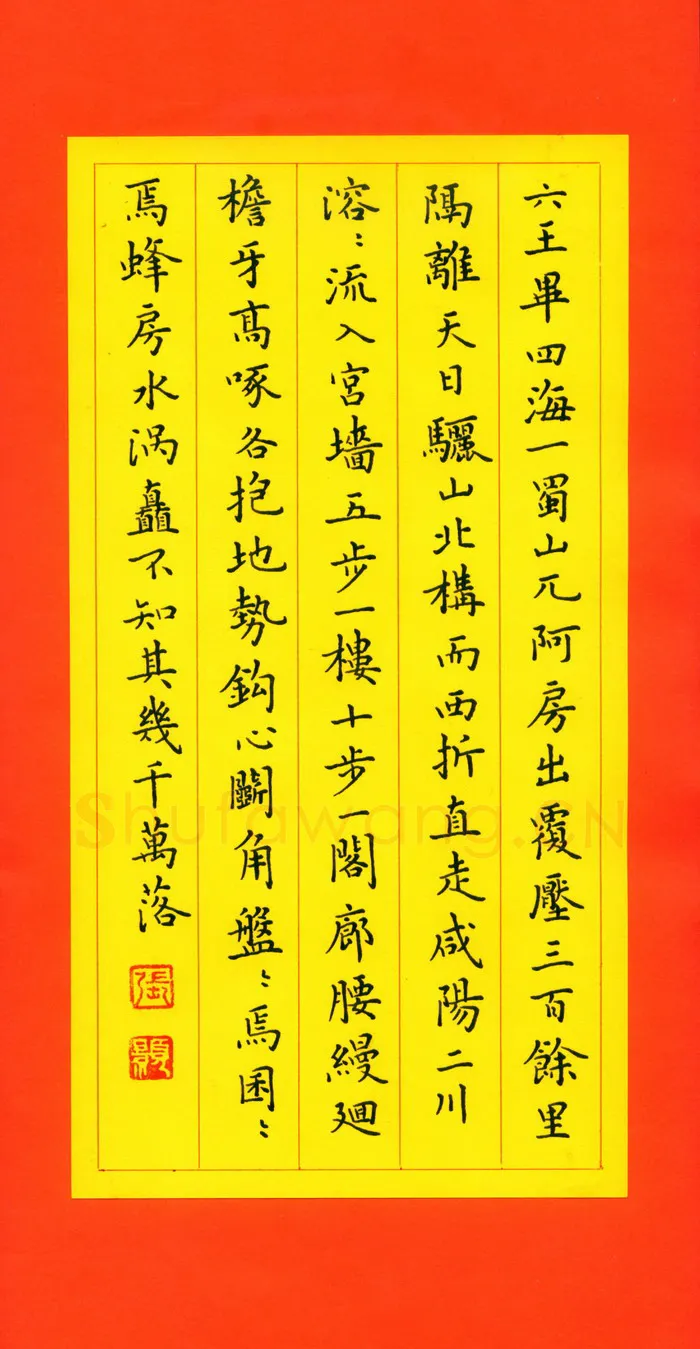 六王畢四海一蜀山兀阿房出覆壓三百餘里
隅離天日驪山北構而西折直走咸陽二川
溶〻流入宮墻五步一樓十步一閣廊腰縵廻
檐牙高啄各抱地勢鈎心鬬角盤〻焉囷〻
焉蜂房水渦矗不知其幾千萬落
張
顥
Shufawang.CN